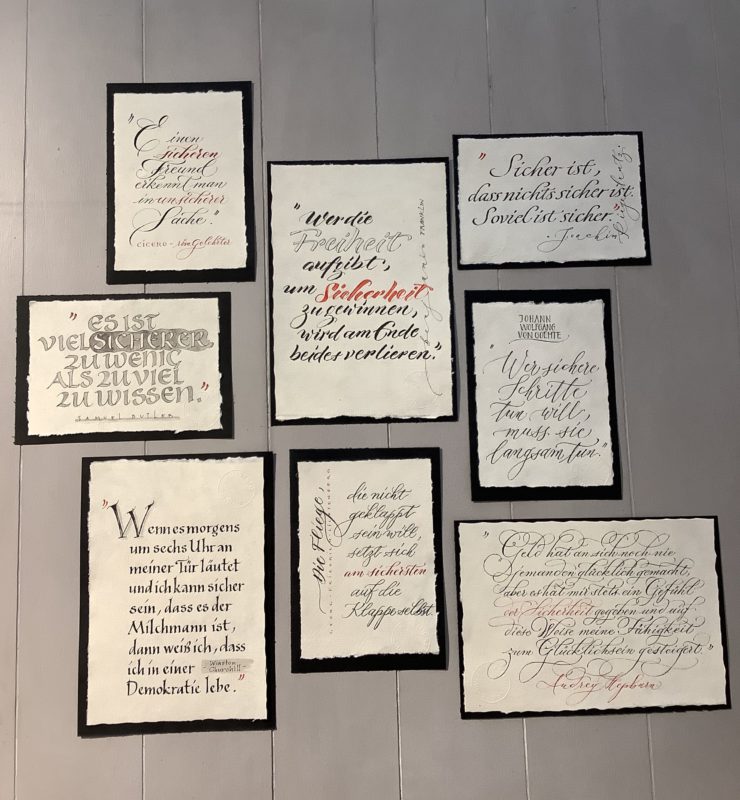 "Einen
sicheren
Freund
erkennt man
in unsicherer
Sache."
CICERO -
"Wer die
Freiheit
aufgibt,
um Sicherheit
zu gewinnen,
wird am Ende
beides verlieren."
Benjamin FRANKLIN
"Sicher ist,
dass nichts sicher ist.
Soviel ist sicher."
- Joachim
Ringelnatz -
"ES IST
VIEL SICHERER,
ZU WENIG
ALS ZU VIEL
ZU WISSEN."
SAMUEL BUTLER
JOHANN
WOLFGANG
VON GOETHE
"Wer sichere
Schritte
tun will,
muss sie
langsam tun."
"Wenn es morgens
um sechs Uhr an
meiner Tür läutet
und ich kann sicher
sein, dass es der
Milchmann ist,
dann weiß ich, dass
ich in einer
Demokratie lebe."
- Winston
Churchill -
Die Fliege,
die nicht
geklappt
sein will,
setzt sich
am sichersten
auf die
Klappe selbst.
GEORG CHRISTOPH LICHTENBERG
"Geld hat an sich noch nie
Jemanden glücklich gemacht,
aber es hat mir stets ein Gefühl
der Sicherheit gegeben und auf
diese Weise meine Fähigkeit
zum Glücklichsein gesteigert."
Audrey Hepburn